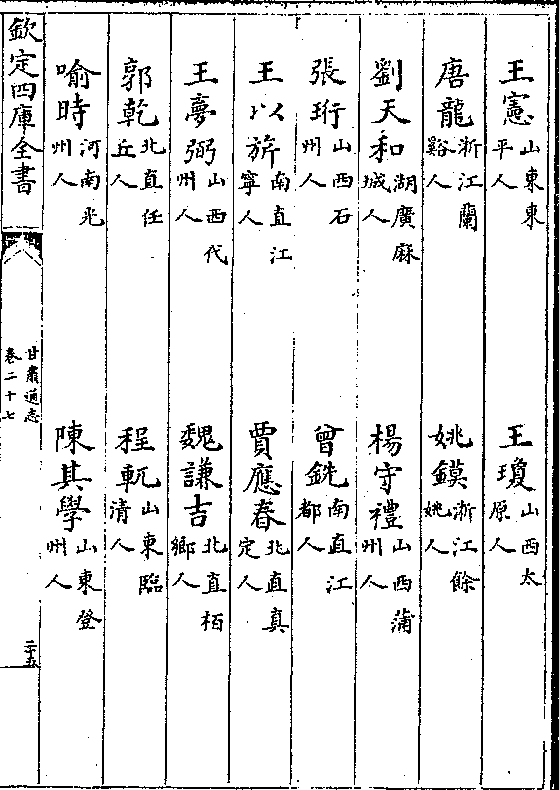 王憲山東東平人　王瓊山西太原人
唐龍浙江蘭谿人　姚鏌浙江餘姚人
劉天和湖廣麻城人　楊守禮山西蒲州人
張珩山西石州人　曾銑南直江都人
王以旂南直江寧人　賈應春北直真定人
王夢弼山西代州人　魏謙吉北直栢鄉人
郭乾北直任丘人　程軏山東臨清人
喻時河南光州人　陳其學山東登州人
欽定四庫全書
甘肅通志
卷二十七
二十五